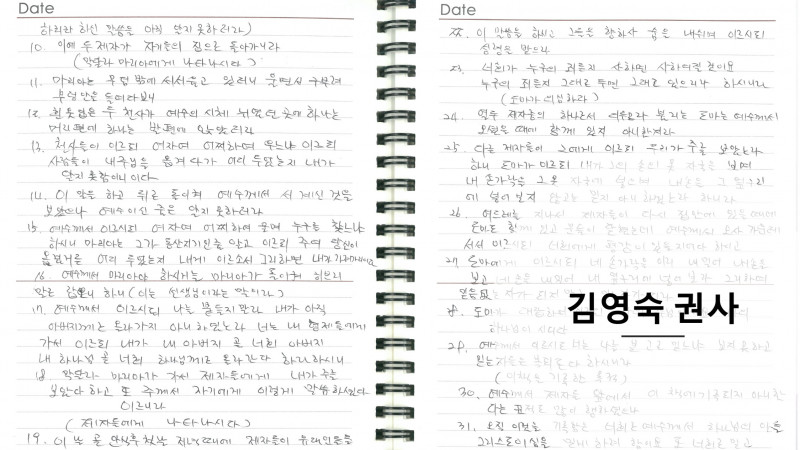 Date
하리라 하신 말씀을 아직 알지 못하더라)
10. 이에 두 제자가 자기들의 집으로 돌아가니라
(막달라 마리아에게 나타나시다)
11. 마리아는 무덤 밖에 서서 울고 있더니 울면서 구부려
무덤 안을 들여다보니
12. 흰 옷 입은 두 천사가 예수의 시체 뉘었던 곳에 하나는
머리 편에 하나는 발 편에 앉았더라
13. 천사들이 이르되 여자여 어찌하여 우느냐 이르되
사람들이 내 주님을 옮겨다가 어디 두었는지 내가
알지 못함이니이다
14. 이 말을 하고 뒤로 돌이켜 예수께서 서 계신 것을
보았으나 예수이신 줄은 알지 못하더라
15. 예수께서 이르시되 여자여 어찌하여 울며 누구를 찾느냐
하시니 마리아는 그가 동산지기인줄 알고 이르되 주여 당신이
옮겼거든 어디 두었는지 내게 이르소서 그리하면 내가 가져가리이다
16. 예수께서 마리아야 하시거늘 마리아가 돌이켜 히브리
말로 랍오니 하니 (이는 선생님이라는 말이라)
17. 예수께서 이르시되 나를 붙들지 말라 내가 아직
아버지께로 올라가지 아니하였노라 너는 내 형제들에게
가서 이르되 내가 내 아버지 곧 너희 아버지
내 하나님 곧 너희 하나님께로 올라간다 하라 하시니
18. 막달라 마리아가 가서 제자들에게 내가 주를
보았다 하고 또 주께서 자기에게 이렇게 말씀하셨다
이르니라
(제자들에게 나타나시다)
19. 이 날 곧 안식후 첫날 저녁때에 제자들이 유대인들을
Date
22. 이 말씀을 하시고 그들을 향하사 숨을 내쉬며 이르시되
성령을 받으라
23. 너희가 누구의 죄든지 사하면 사하여질 것이요
누구의 죄든지 그대로 두면 그대로 있으리라 하시니라
(도마가 의심하다)
24. 열두 제자중의 하나로서 디두모라 불리는 도마는 예수께서
오셨을 때에 함께 있지 아니한지라
25. 다른 제자들이 그에게 이르되 우리가 주를 보았노라
하니 도마가 이르되 내가 그의 손의 못 자국을 보며
내 손가락을 그 못 자국에 넣으며 내 손을 그 옆구리
에 넣어 보지 않고는 믿지 아니하겠노라 하니라
26. 여드레를 지나서 제자들이 다시 집안에 있을 때에
도마도 함께 있고 문들이 닫혔는데 예수께서 오사 가운데
서서 이르시되 너희에게 평강이 있을지어다 하시고
27. 도마에게 이르시되 네 손가락을 이리 내밀어 내 손을
보고 네 손을 내밀어 내 옆구리에 넣어 보라 그리하여
28. 도마가
하나님이시니이다
29. 예수께서 이르시되 너는 나를 본 고로 믿느냐 보지 못하고
믿는 자들은 복되도다 하시니라
(이 책을 기록한 목적)
30. 예수께서 제자들 앞에서 이 책에 기록되지 아니한
다른 표적도 많이 행하셨으나
31. 오직 이것을 기록함은 너희로 예수께서 하나님의 아들
그리스도이심을 믿게 하려 함이요 또 너희로 믿고
김영숙 권사